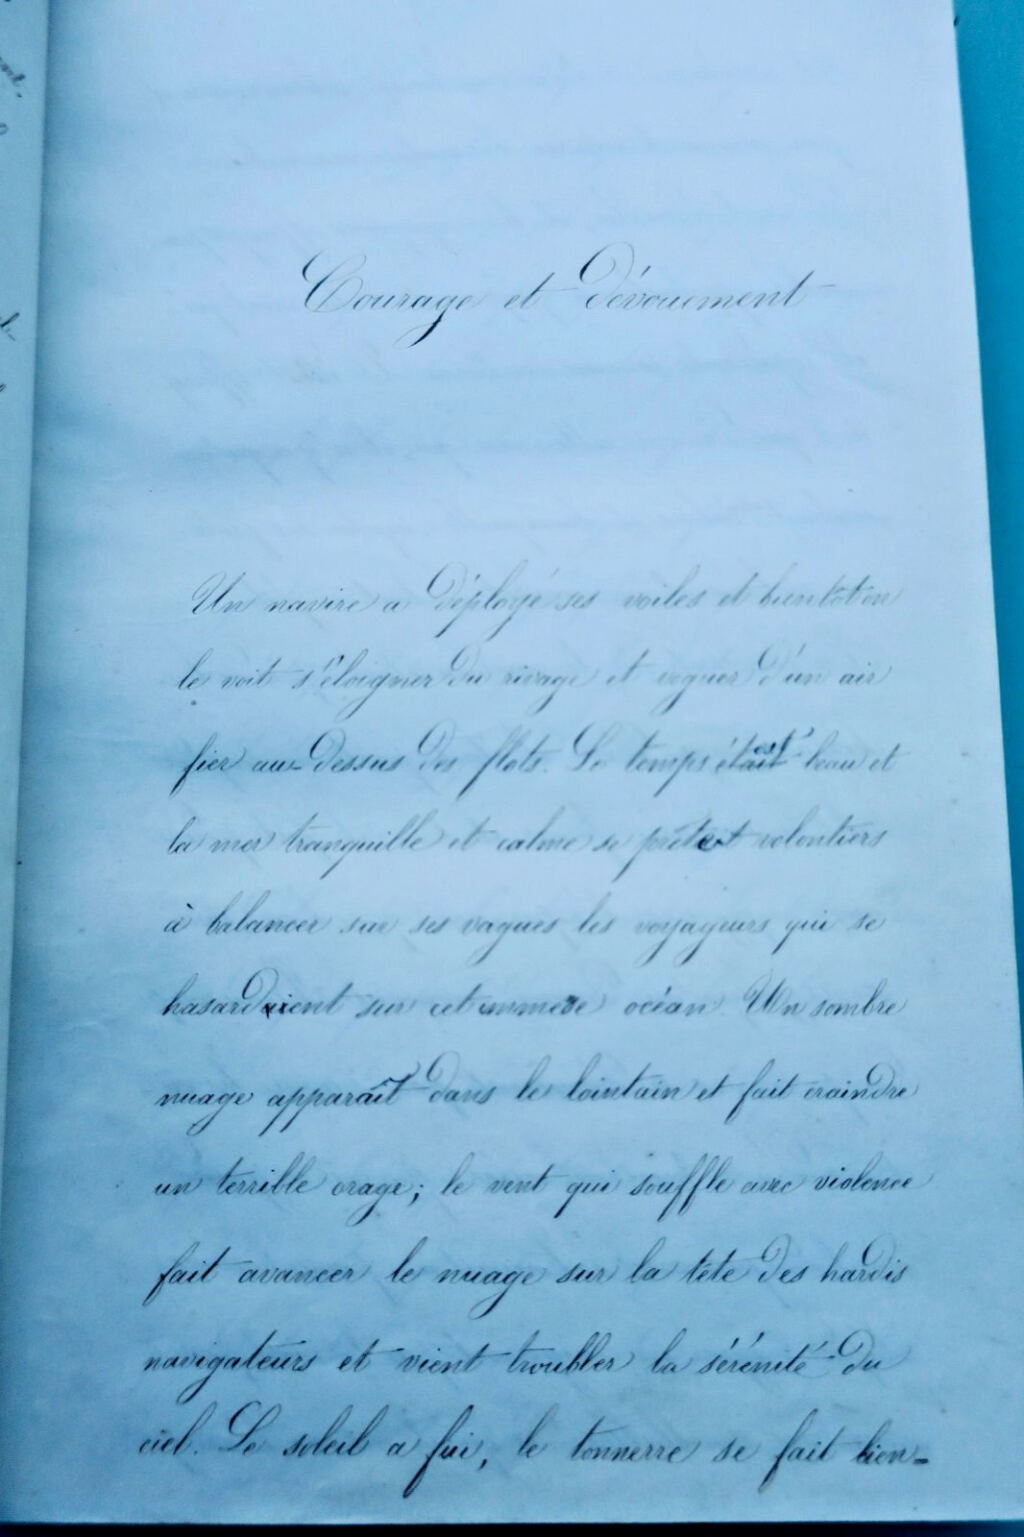 Courage et Dévouement
Un navire a déployé ses voiles et bientôt on
le voit s'éloigner du rivage et voguer d'un air
fier au-dessus des flots. Le temps est beau et
la mer tranquille et calme se prête volontiers
à balancer sur ses vagues les voyageurs qui se
hasardaient sur cet immense océan. Un sombre
nuage apparaît dans le lointain et fait craindre
un terrible orage; le vent qui souffle avec violence
fait avancer le nuage sur la tête des hardis
navigateurs et vient troubler la sérénité du
ciel. Le soleil a fui, le tonnerre se fait bien-